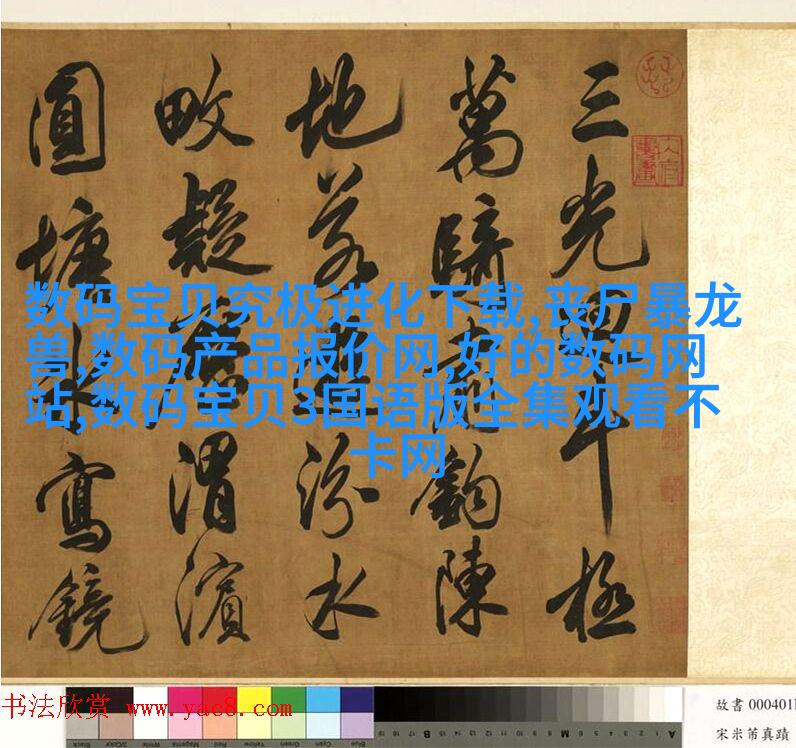 三光回斗極
萬騎肅鈎陳
地若遊汾水
畋疑歷渭濱
圓塘冰寫鏡
数码宝贝究极进化下载,丧尸暴龙
兽,数码产品报价网,好的数码网
站,数码宝贝3国语版全集观看不
卡网
书法欣赏 www.yac8.com
故書 000401
宋米芾真蹟